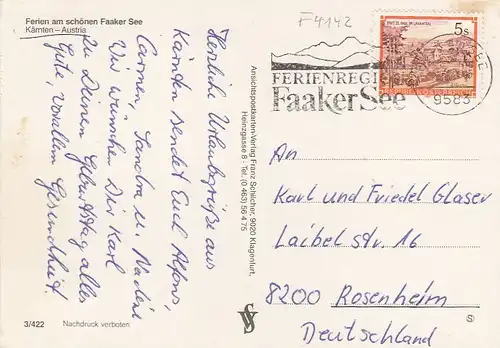 Ferien am schönen Faaker See
Kärnten – Austria
Herzliche Urlaubsgrüße aus
Kärnten sendet Euch Alfons,
Carmen, Sandra u. Nadine
Wir wünschen Dir Karl
zu Deinem Geburtstag alles
Gute, vorallem Gesundheit.
3/422 Nachdruck verboten
Ansichtspostkarten-Verlag Franz Schilcher, 9020 Klagenfurt,
Heinzgasse 8 - Tel. (0 463) 56 4 75
F4142
FERIENREGI
Faaker See
5s
9583
An
Karl und Friedel Glaser
Laibel str. 16
8200 Rosenheim
Deutschland